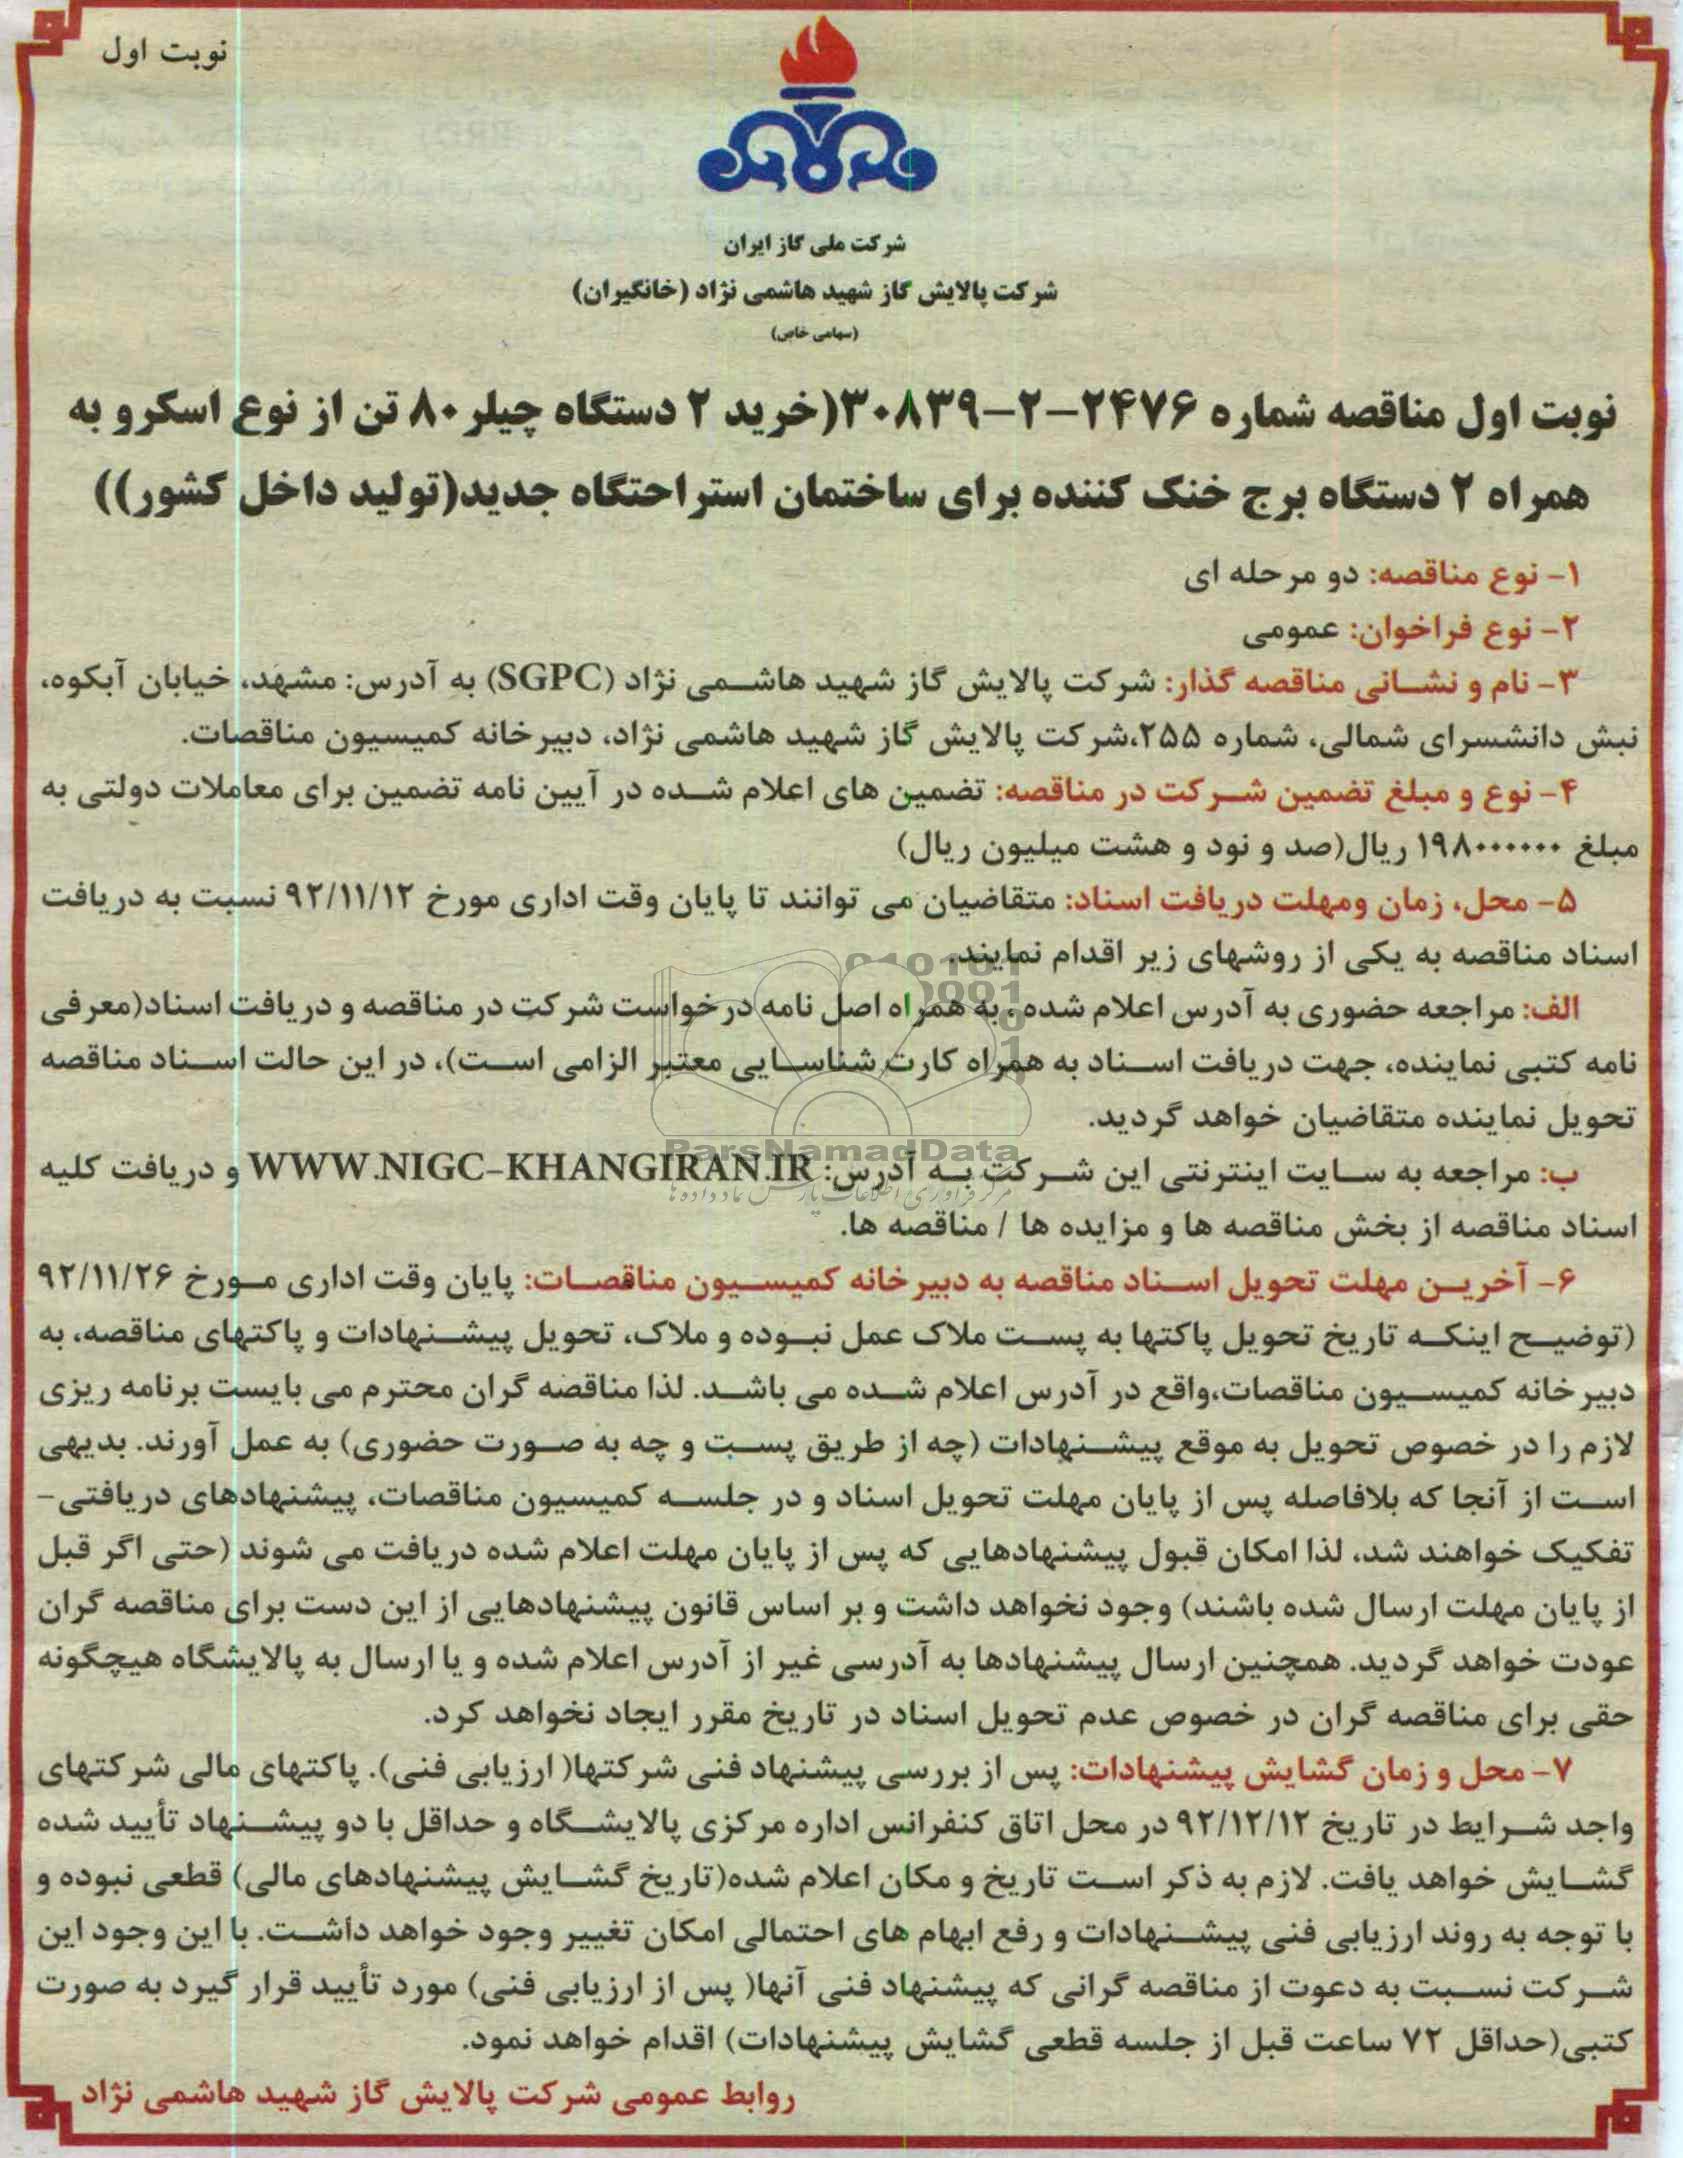 نوبت اول
شرکت ملی گاز ایران
شرکت پالایش گاز شهید هاشمی نژاد (خانگیران)
(سهامی خاص)
نوبت اول مناقصه شماره ۲۴۷۶-۲-۳۰۸۳۹(خرید ۲ دستگاه چیلر ۸۰ تن از نوع اسکرو به
همراه ۲ دستگاه برج خنک کننده برای ساختمان استراحتگاه جدید(تولید داخل کشور))
۱- نوع مناقصه: دو مرحله ای
۲- نوع فراخوان: عمومی
۳- نام و نشانی مناقصه گذار: شرکت پالایش گاز شهید هاشمی نژاد (SGPC) به آدرس: مشهد، خیابان آبکوه،
نبش دانشسرای شمالی، شماره ۲۵۵،شرکت پالایش گاز شهید هاشمی نژاد، دبیرخانه کمیسیون مناقصات.
۴- نوع و مبلغ تضمین شرکت در مناقصه: تضمین های اعلام شده در آیین نامه تضمین برای معاملات دولتی به
مبلغ ۱۹۸۰۰۰۰۰۰ ریال(صد و نود و هشت میلیون ریال)
۵- محل، زمان ومهلت دریافت اسناد: متقاضیان می توانند تا پایان وقت اداری مورخ ۹۲/۱۱/۱۲ نسبت به دریافت
اسناد مناقصه به یکی از روشهای زیر اقدام نمایند.
الف: مراجعه حضوری به آدرس اعلام شده ، به همراه اصل نامه درخواست شرکت در مناقصه و دریافت اسناد(معرفی
نامه کتبی نماینده، جهت دریافت اسناد به همراه کارت شناسایی معتبر الزامی است)، در این حالت اسناد مناقصه
تحویل نماینده متقاضیان خواهد گردید.
ParsNamadData
ب: مراجعه به سایت اینترنتی این شرکت به آدرس: WWW.NIGC-KHANGIRAN.IR و دریافت کلیه
مرکز فرآوری اطلاعات پارس نماد داده ها
اسناد مناقصه از بخش مناقصه ها و مزایده ها / مناقصه ها.
۶- آخرین مهلت تحویل اسناد مناقصه به دبیرخانه کمیسیون مناقصات: پایان وقت اداری مورخ ۹۲/۱۱/۲۶
(توضیح اینکه تاریخ تحویل پاکتها به پست ملاک عمل نبوده و ملاک، تحویل پیشنهادات و پاکتهای مناقصه، به
دبیرخانه کمیسیون مناقصات،واقع در آدرس اعلام شده می باشد. لذا مناقصه گران محترم می بایست برنامه ریزی
لازم را در خصوص تحویل به موقع پیشنهادات (چه از طریق پست و چه به صورت حضوری) به عمل آورند. بدیهی
است از آنجا که بلافاصله پس از پایان مهلت تحویل اسناد و در جلسه کمیسیون مناقصات، پیشنهادهای دریافتی-
تفکیک خواهند شد، لذا امکان قبول پیشنهادهایی که پس از پایان مهلت اعلام شده دریافت می شوند (حتی اگر قبل
از پایان مهلت ارسال شده باشند) وجود نخواهد داشت و بر اساس قانون پیشنهادهایی از این دست برای مناقصه گران
عودت خواهد گردید. همچنین ارسال پیشنهادها به آدرسی غیر از آدرس اعلام شده و یا ارسال به پالایشگاه هیچگونه
حقی برای مناقصه گران در خصوص عدم تحویل اسناد در تاریخ مقرر ایجاد نخواهد کرد.
۷- محل و زمان گشایش پیشنهادات: پس از بررسی پیشنهاد فنی شرکتها( ارزیابی فنی). پاکتهای مالی شرکتهای
واجد شرایط در تاریخ ۹۲/۱۲/۱۲ در محل اتاق کنفرانس اداره مرکزی پالایشگاه و حداقل با دو پیشنهاد تأیید شده
گشایش خواهد یافت. لازم به ذکر است تاریخ و مکان اعلام شده(تاریخ گشایش پیشنهادهای مالی) قطعی نبوده و
با توجه به روند ارزیابی فنی پیشنهادات و رفع ابهام های احتمالی امکان تغییر وجود خواهد داشت. با این وجود این
شرکت نسبت به دعوت از مناقصه گرانی که پیشنهاد فنی آنها( پس از ارزیابی فنی) مورد تأیید قرار گیرد به صورت
کتبی(حداقل ۷۲ ساعت قبل از جلسه قطعی گشایش پیشنهادات) اقدام خواهد نمود.
روابط عمومی شرکت پالایش گاز شهید هاشمی نژاد